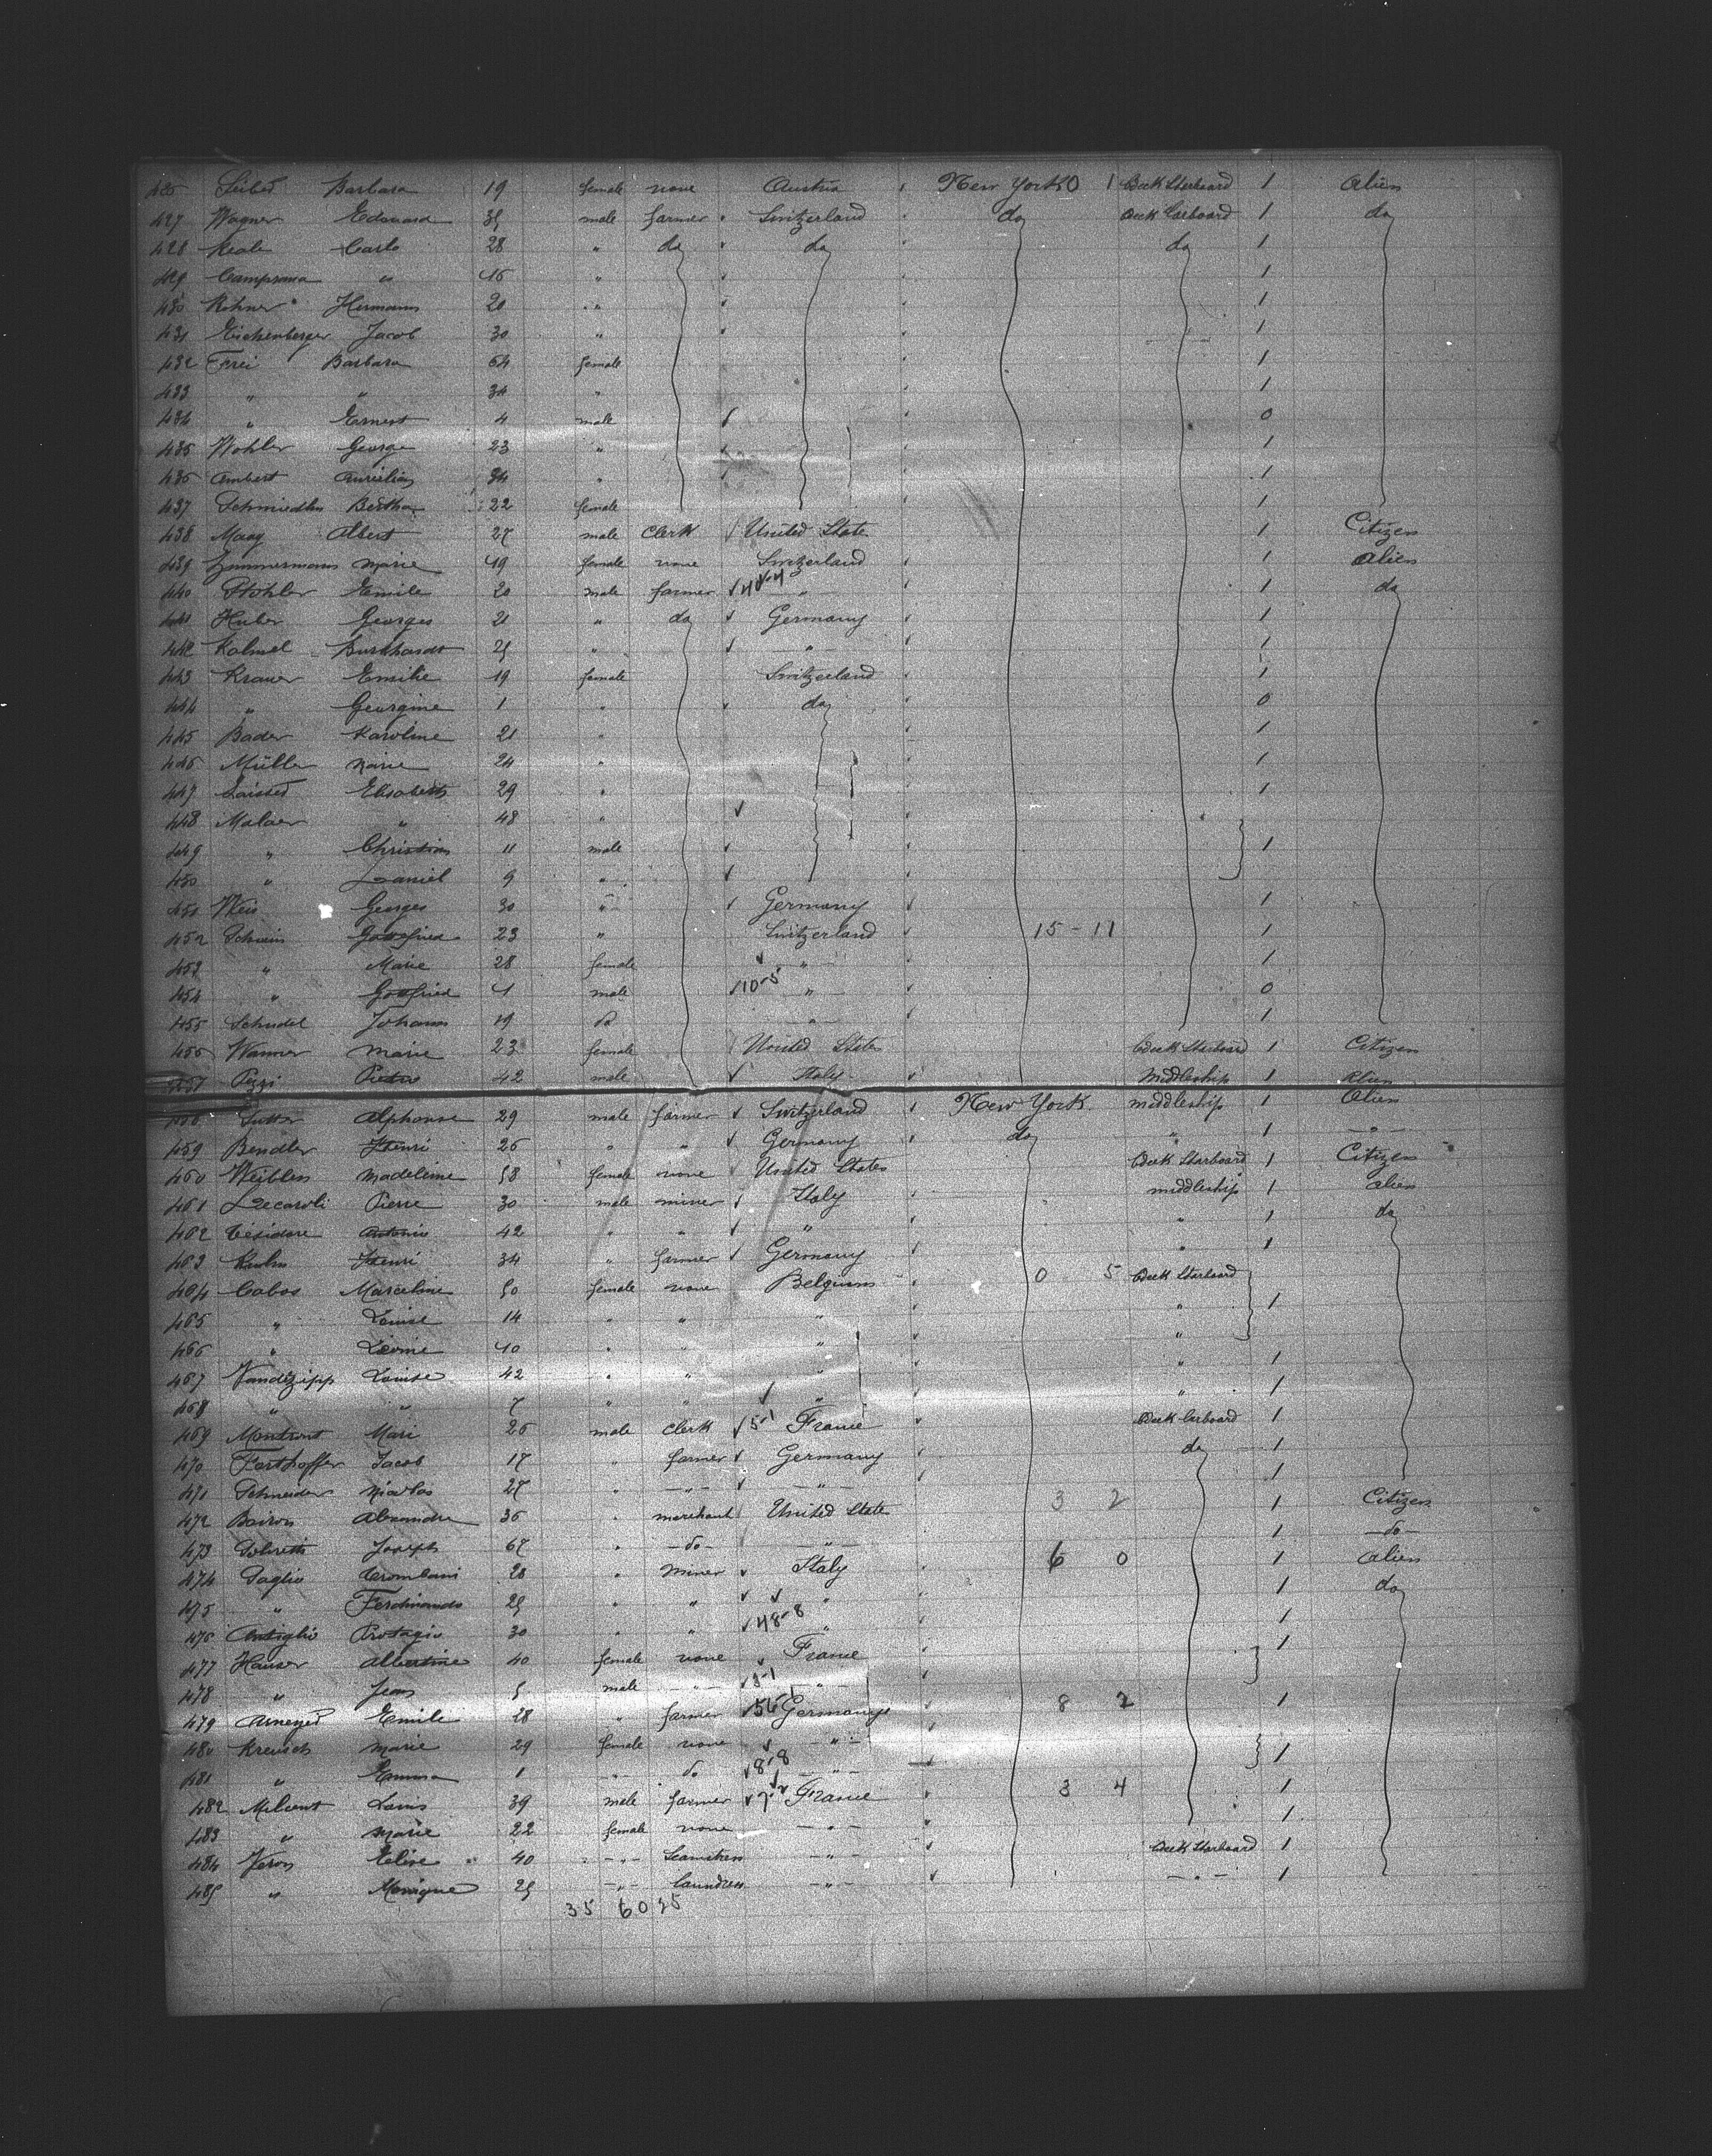 Barbara 19 female none Austria New York 0 1 Deck Starboard 1 Alien
427 Wagner Edouard 35 male farmer Switzerland do Deck Larboard 1 do
428 Carlo 28 " do do do 1
429 Camprana " 46 " 1
430 Rohner Hermann 20 " 1
431 Eichenberger Jacob 30 " 1
432 Frei Barbara 64 female 1
433 " " 34 " 1
434 " Ernest 4 male 0
435 Wohler George 23 " 1
436 Ambert 34 " 1
437 Bertha 22 female 1
438 Maag Albert 27 male Clerk United State 1 Citizen
439 Zimmermann Marie 49 female none Switzerland 1 Alien
440 Emile 20 male farmer " 1 do
441 Huber Georges 21 " do Germany 1
442 Kalmel Burkhardt 25 " " 1
443 Krauer Emilie 19 female Switzerland 1
444 " Georgine 1 " do 0
445 Bader Karoline 21 " 1
446 Müller Marie 24 " 1
447 Elisabeth 29 " 1
448 Malaer " 48 "
449 " Christian 11 male 1
450 " Daniel 9 "
451 Weis Georges 30 " Germany 1
452 Gottfried 23 " Switzerland 15 - 11 1
453 " Marie 28 female " 1
454 " Gottfried 4 male 10-5 " 0
455 Schudel Johann 19 do " 1
456 Wanner Marie 23 female United States Deck Starboard 1 Citizen
457 Pezzi Pietro 42 male Italy Middleship 1 Alien
458 Sutter Alphonse 29 male farmer Switzerland New York middleship 1 Alien
459 Bendler Henri 26 " " Germany do " 1 "
460 Weiblen Madeleine 58 female none United States Deck Starboard 1 Citizen
461 Decaroli Pierre 30 male miner Italy middleship 1 Alien
462 Antonio 42 " " " " 1 do
463 Kuhn Henri 34 " farmer Germany " 1
464 Cabos Marceline 50 female none Belgium 0 5 Deck Starboard
465 " Louise 14 " " " " 1
466 " Léonie 10 " " " "
467 Louise 42 " " " " 1
468 " " 7 " " " " 1
469 Marie 26 male clerk 5-1 France Deck Larboard 1
470 Forthoffer Jacob 17 " farmer Germany do 1
471 Schneider Nicolas 27 " " " 1
472 Alexandre 36 " merchant United State 3 2 1 Citizen
473 Joseph 67 " do " 1 do
474 Paglio 28 " miner Italy 6 0 1 Alien
475 " Ferdinando 25 " " " 1 do
476 Protagio 30 " " 48-8 " 1
477 Hauser Albertine 40 female none France 1
478 " Jean 5 male " "
479 Emile 28 " farmer Germany 8 2 1
480 Kreusch Marie 29 female none "
481 " Emma 1 " do 8-8 " 1
482 Milcent Louis 39 male farmer France 3 4 1
483 " Marie 22 female none " 1
484 Veron Elise 40 " Seamstress " Deck Starboard 1
485 " Monique 25 " laundress " " 1
35 60